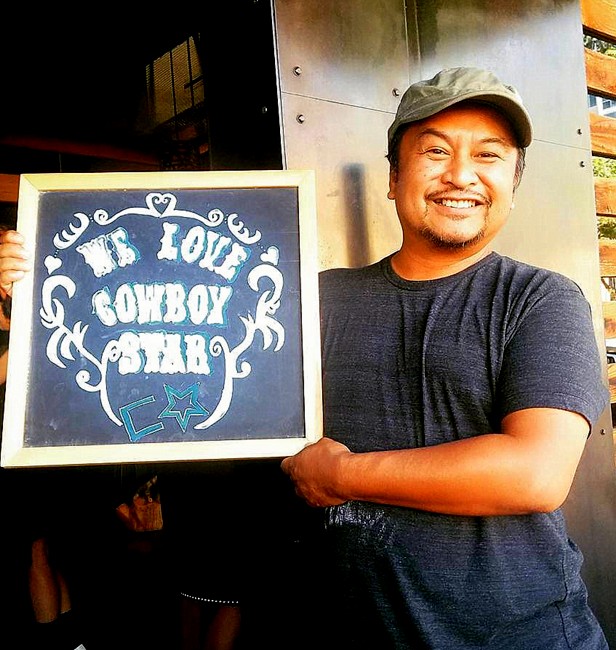 WE LOVE
COWBOY
STAR
C